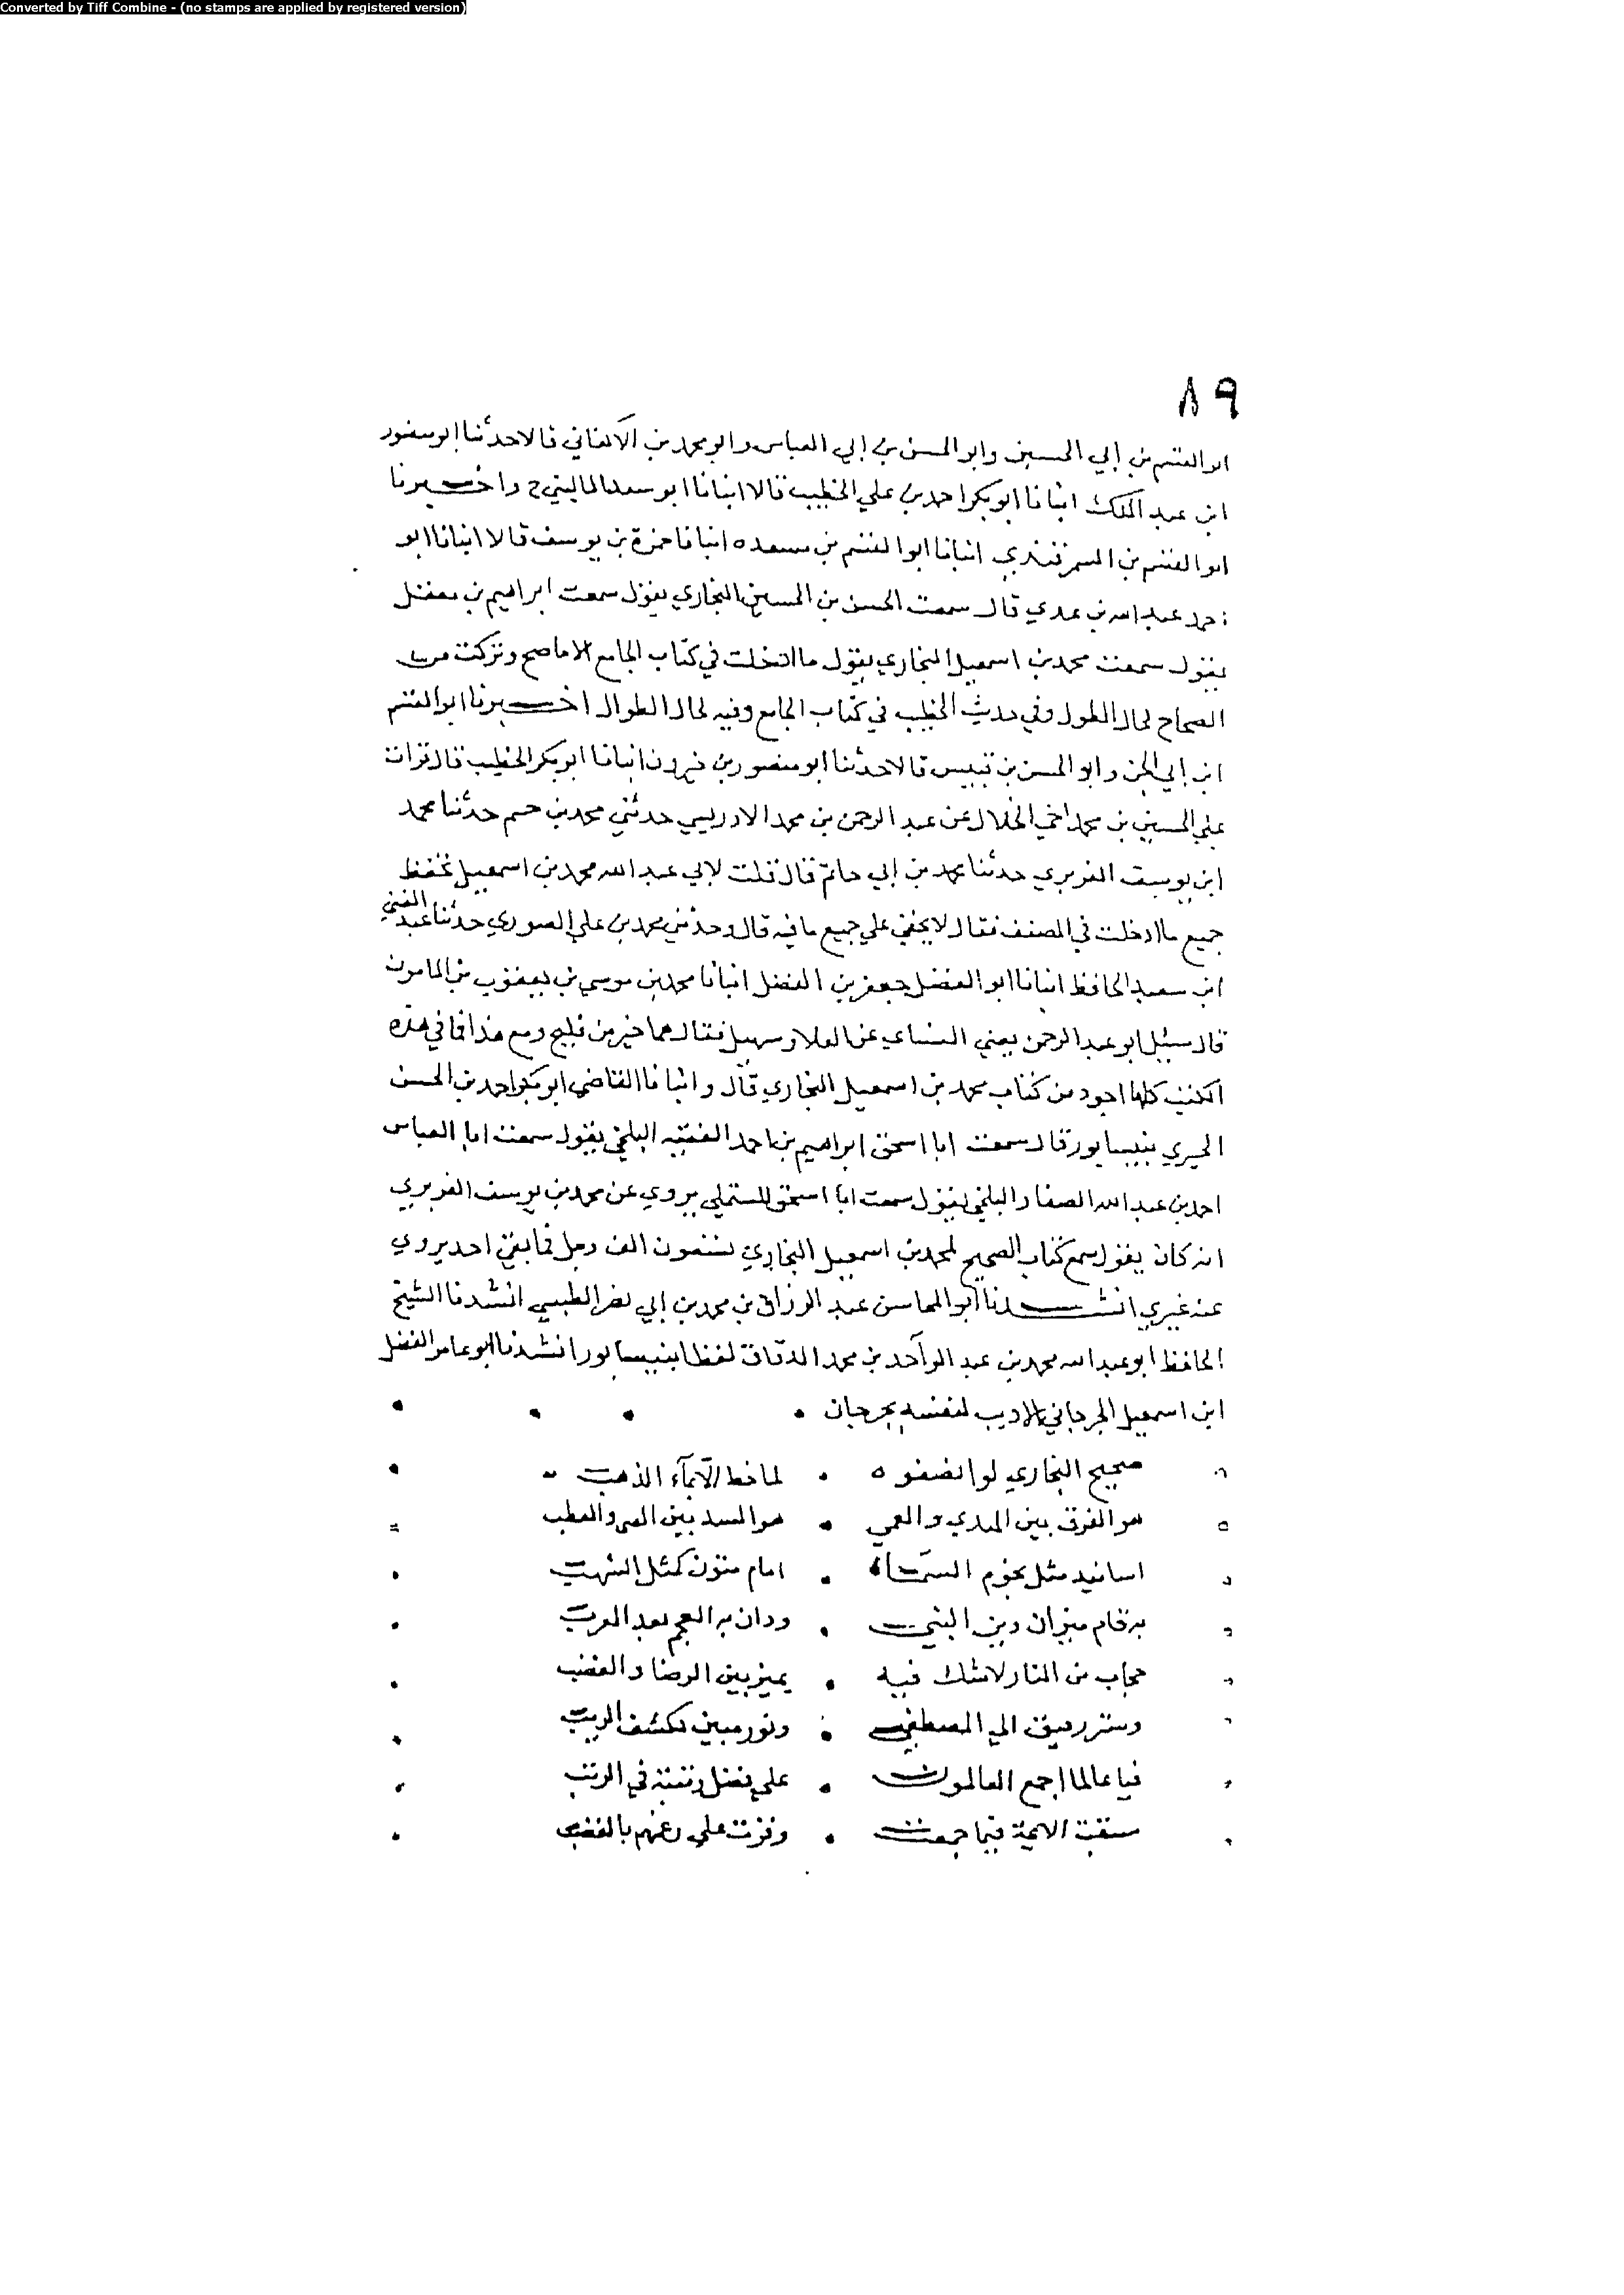 Converted by Tiff Combine - (no stamps are applied by registered version)
٨٩
ابو القسم بن ابي الحسين وابو الحسن بن ابي العباس وابو محمد بن الاكفاني قالا حدثنا ابو منصور
ابن عبد الملك انبانا ابو بكر احمد بن علي الخطيب قالا انبانا ابو سعد الماليني ح واخبرنا
ابو القسم بن السمرقندي انبانا ابو القسم بن مسعده انبانا حمزة بن يوسف قالا انبانا ابو
احمد عبد الله بن عدي قال سمعت الحسن بن الحسين البخاري يقول سمعت ابراهيم بن معقل
يقول سمعت محمد بن اسمعيل البخاري يقول ما ادخلت في كتاب الجامع الا ما صح وتركت من
الصحاح لحال الطول وفي حديث الخطيب في كتاب الجامع وفيه لحال الطوال اخبرنا ابو القسم
ابن ابي الجن وابو الحسن بن قبيس قالا حدثنا ابو منصور بن خيرون انبانا ابو بكر الخطيب قال قرات
علي الحسين بن محمد اخي الخلال عن عبد الرحمن بن محمد الادريسي حدثني محمد بن حم حدثنا محمد
ابن يوسف الفربري حدثنا محمد بن ابي حاتم قال قلت لابي عبد الله محمد بن اسمعيل تحفظ
جميع ما ادخلت في المصنف فقال لا يخفي علي جميع ما فيه قال وحدثني محمد بن علي الصوري حدثنا عبد الغني
ابن سعيد الحافظ انبانا ابو الفضل جعفر بن الفضل انبانا محمد بن موسي بن يعقوب بن المامون
قال سيل ابو عبد الرحمن يعني النساي عن العلا وسهيل فقال هما خير من فليح ومع هذا فما في هذه
الكتب كلها اجود من كتاب محمد بن اسمعيل البخاري قال وانبانا القاضي ابو بكر احمد بن الحسن
الحيري بنيسابور قال سمعت ابا اسحق ابراهيم بن احمد الفقيه البلخي يقول سمعت ابا العباس
احمد بن عبد الله الصفار البلخي يقول سمعت ابا اسحق المستملي يروي عن محمد بن يوسف الفربري
انه كان يقول سمع كتاب الصحيح لمحمد بن اسمعيل البخاري تسعون الف رجل فما بقي احد يروي
عنه غيري انشدنا ابو المحاسن عبد الرزاق بن محمد بن ابي نصر الطبسي انشدنا الشيخ
الحافظ ابو عبد الله محمد بن عبد الواحد بن محمد الدقاق لفظا بنيسابور انشدنا ابو عامر الفضل
ابن اسمعيل الجرجاني الاديب لنفسه بجرجان
صحيح البخاري لو انصفوه لما خط الا بماء الذهب
هو الفرق بين الهدي والعمي هو السد بين العطب
اسانيد مثل نجوم السماء امام متون كمثل الشهب
به قام ميزان دين النبي ودان به العجم بعد العرب
حجاب من النار لا شك فيه يميز بين الرضا والغضب
وستر رقيق الي المصطفي ونور مبين لكشف الريب
فيا عالما اجمع العالمون علي فضل رتبته في الرتب
سبقت الائمة فيما جمعت وفزت علي رغمهم بالقصب